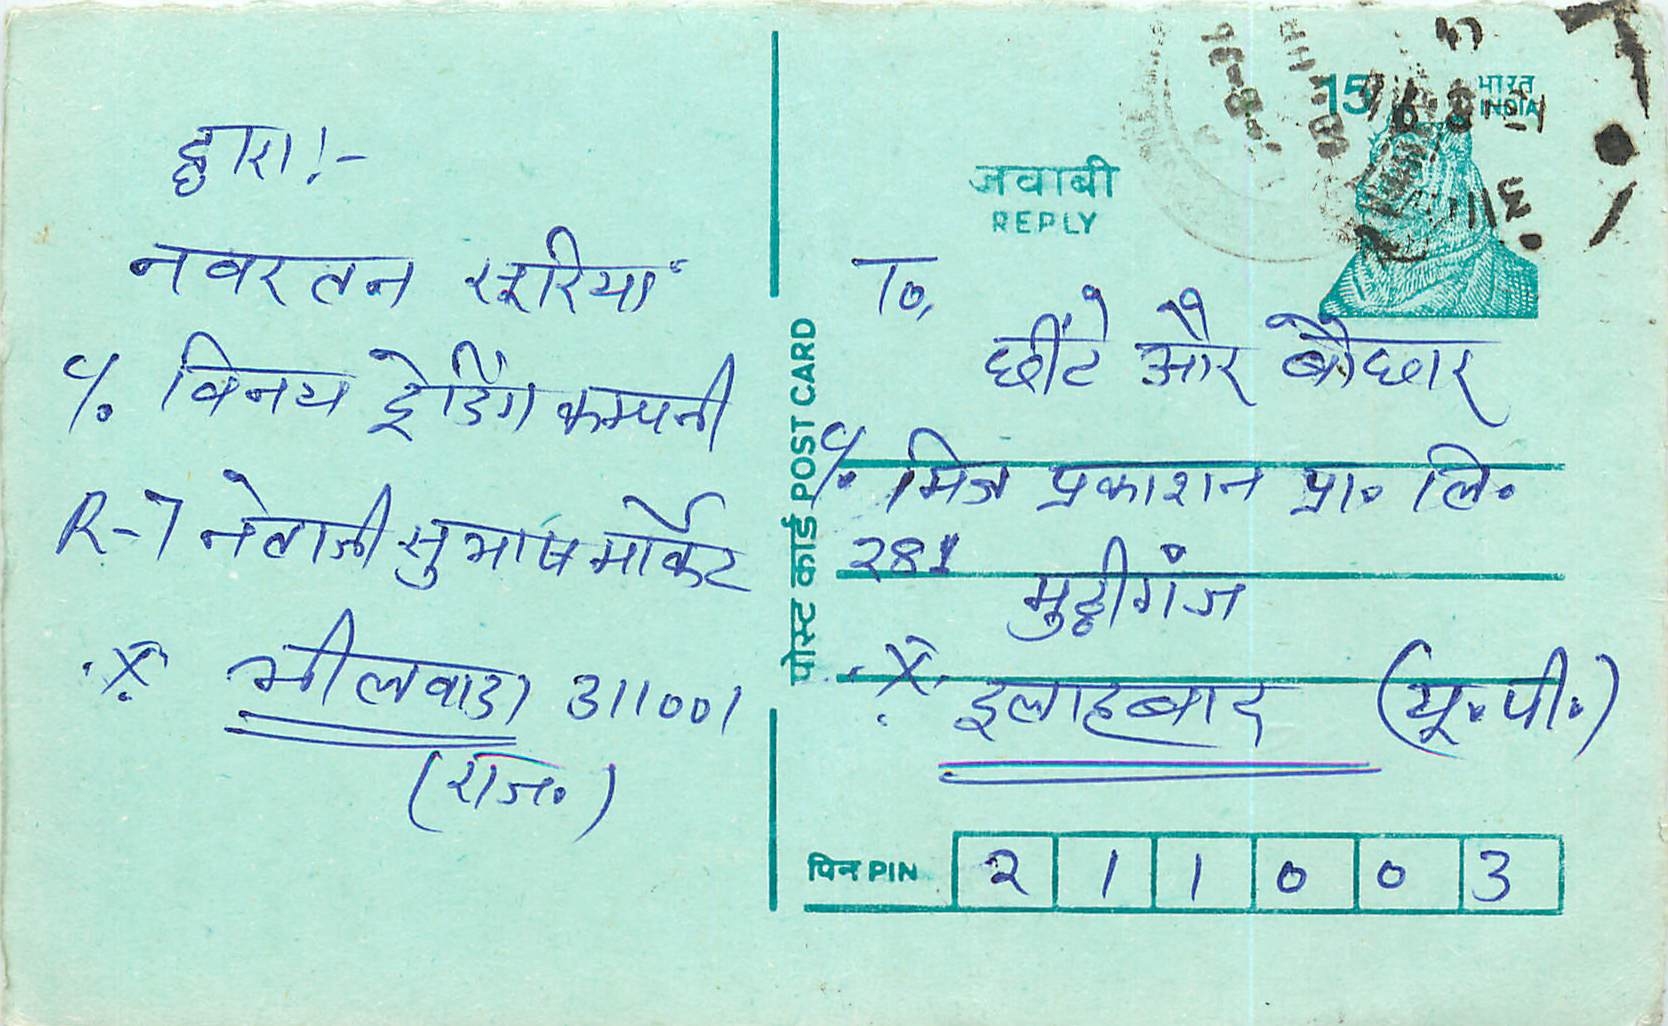 द्वारा:-
नवरतन
% विनय ट्रेडिंग कम्पनी
R-7 नेताजी सुभाष मार्केट
भीलवाडा 311001
(राज॰)
पोस्ट कार्ड POST CARD
15
भारत
INDIA
जवाबी
REPLY
To,
छींटे और बौछार
% मित्र प्रकाशन प्रा॰ लि॰
281
मुट्ठीगंज
इलाहबाद (यू॰पी॰)
पिन PIN 211003